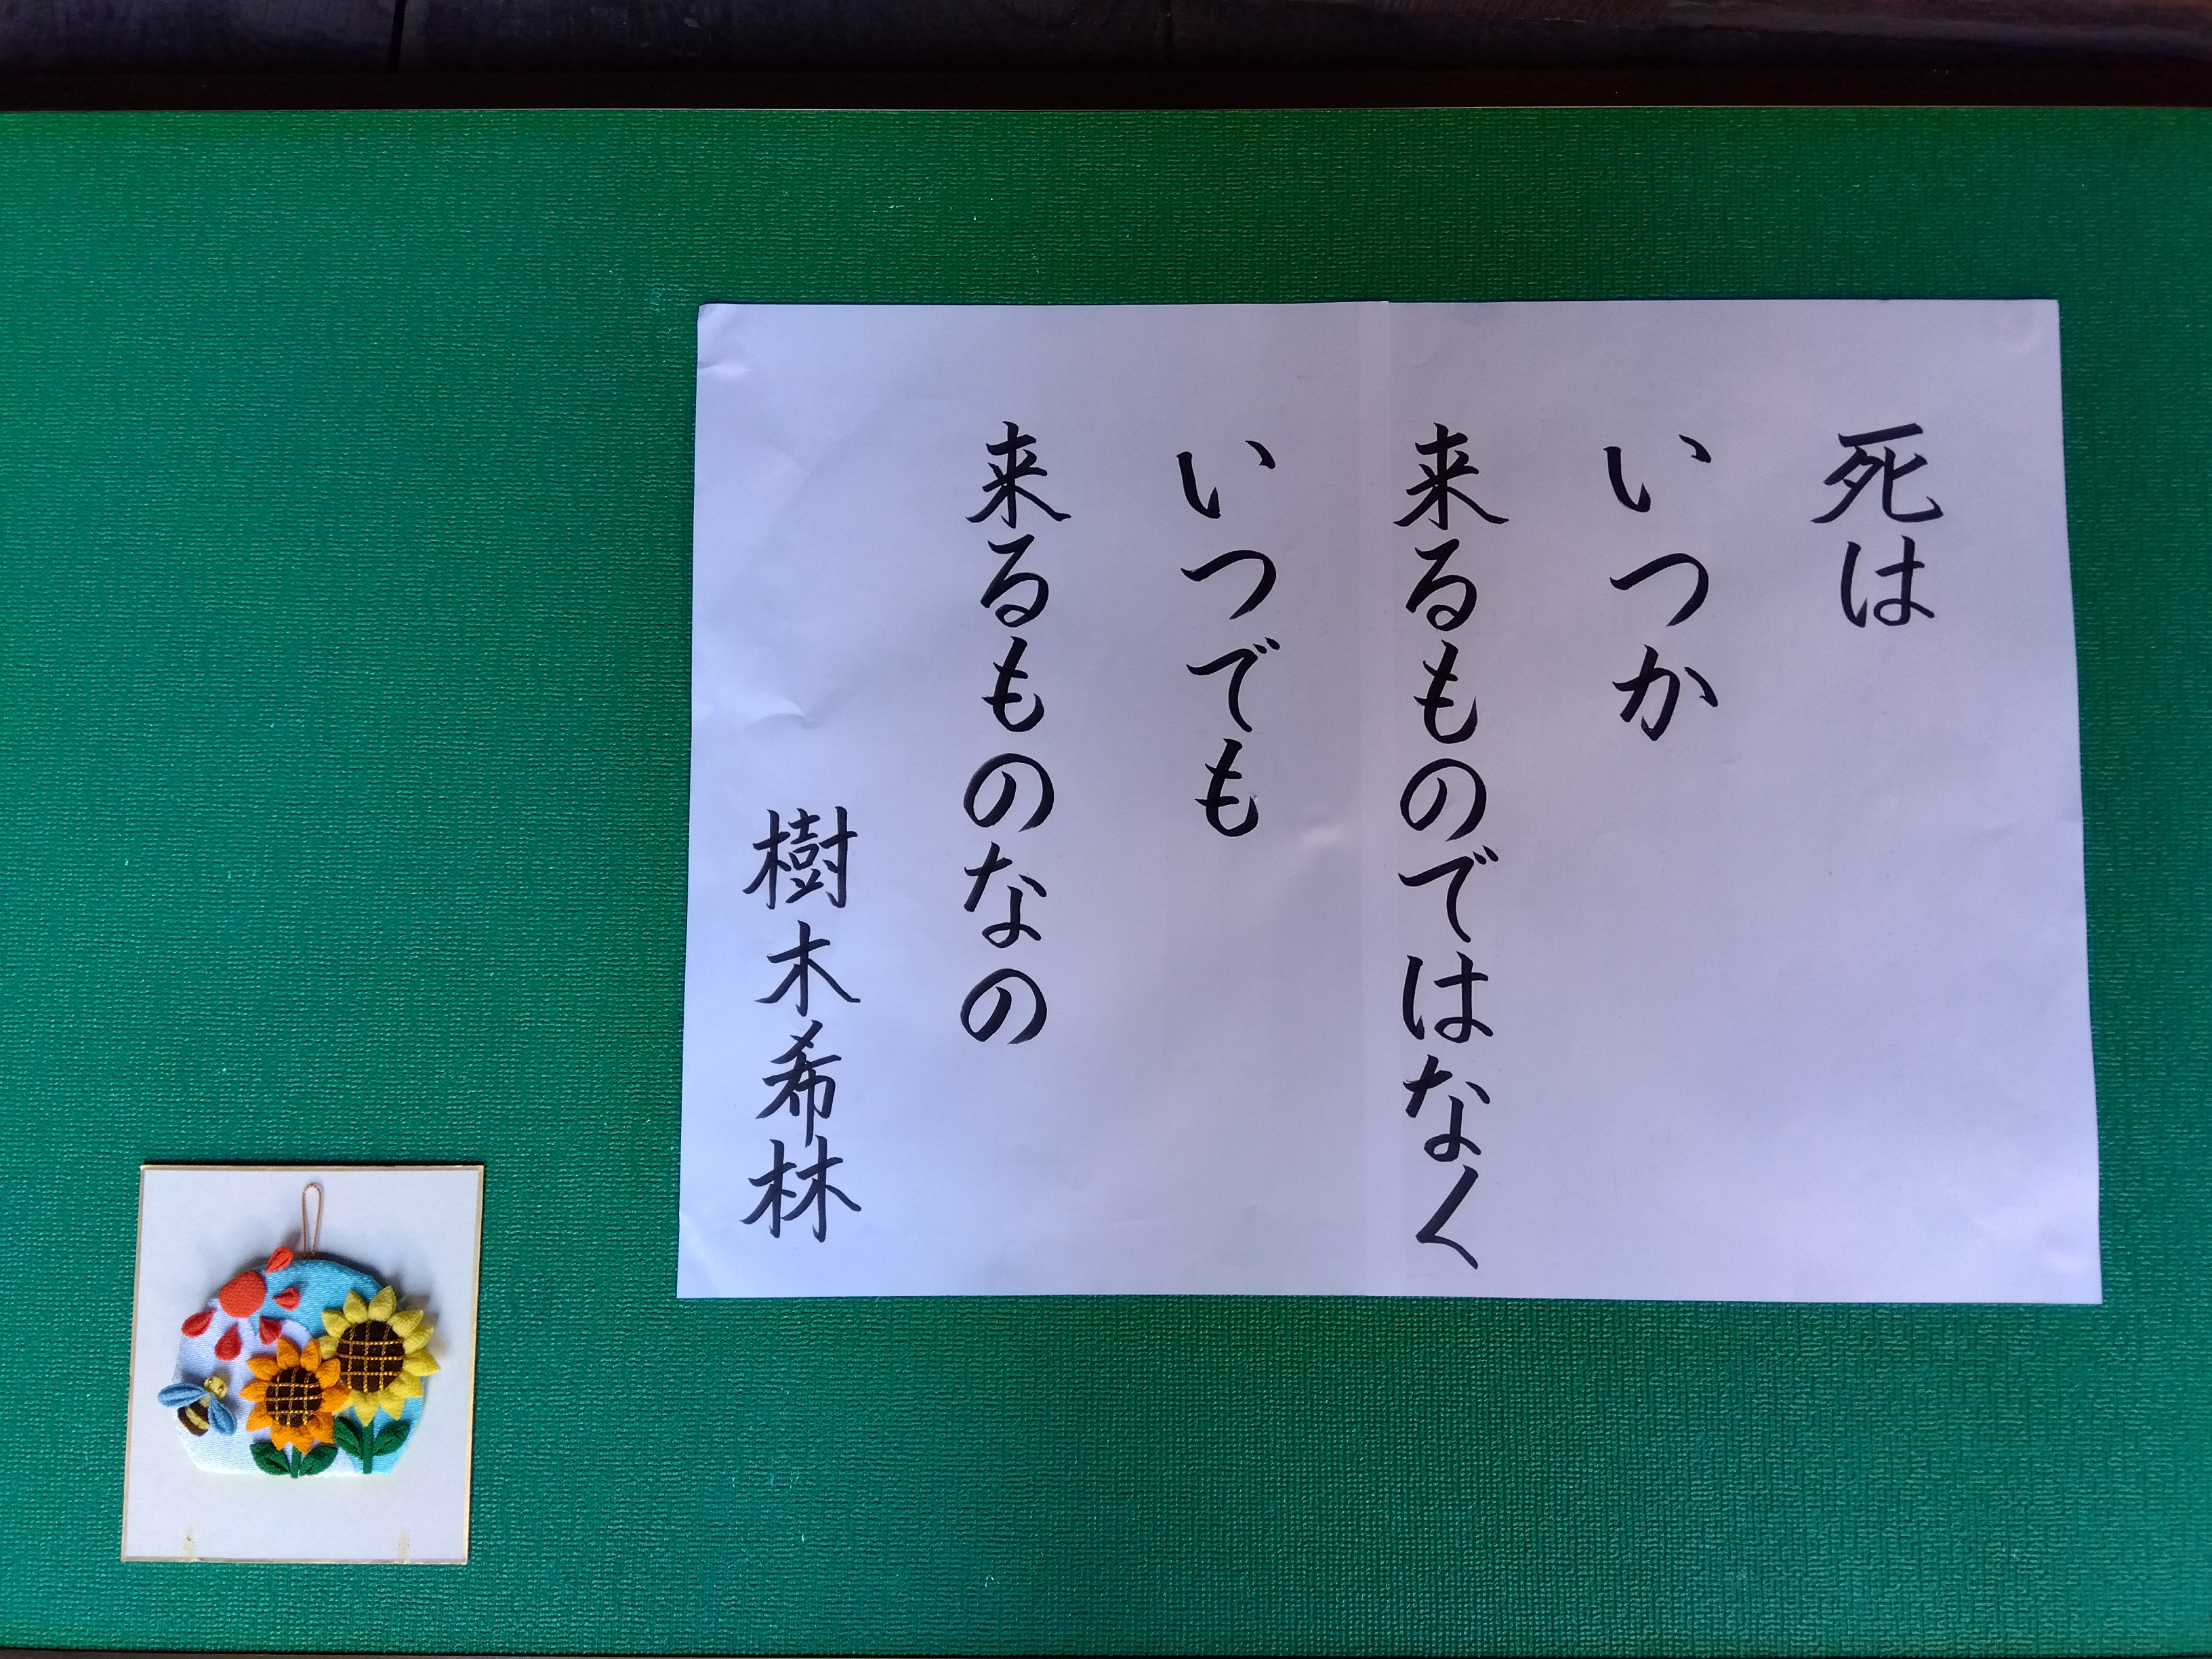 死は
いつか
来るものではなく
いつでも
来るものなの
樹木希林